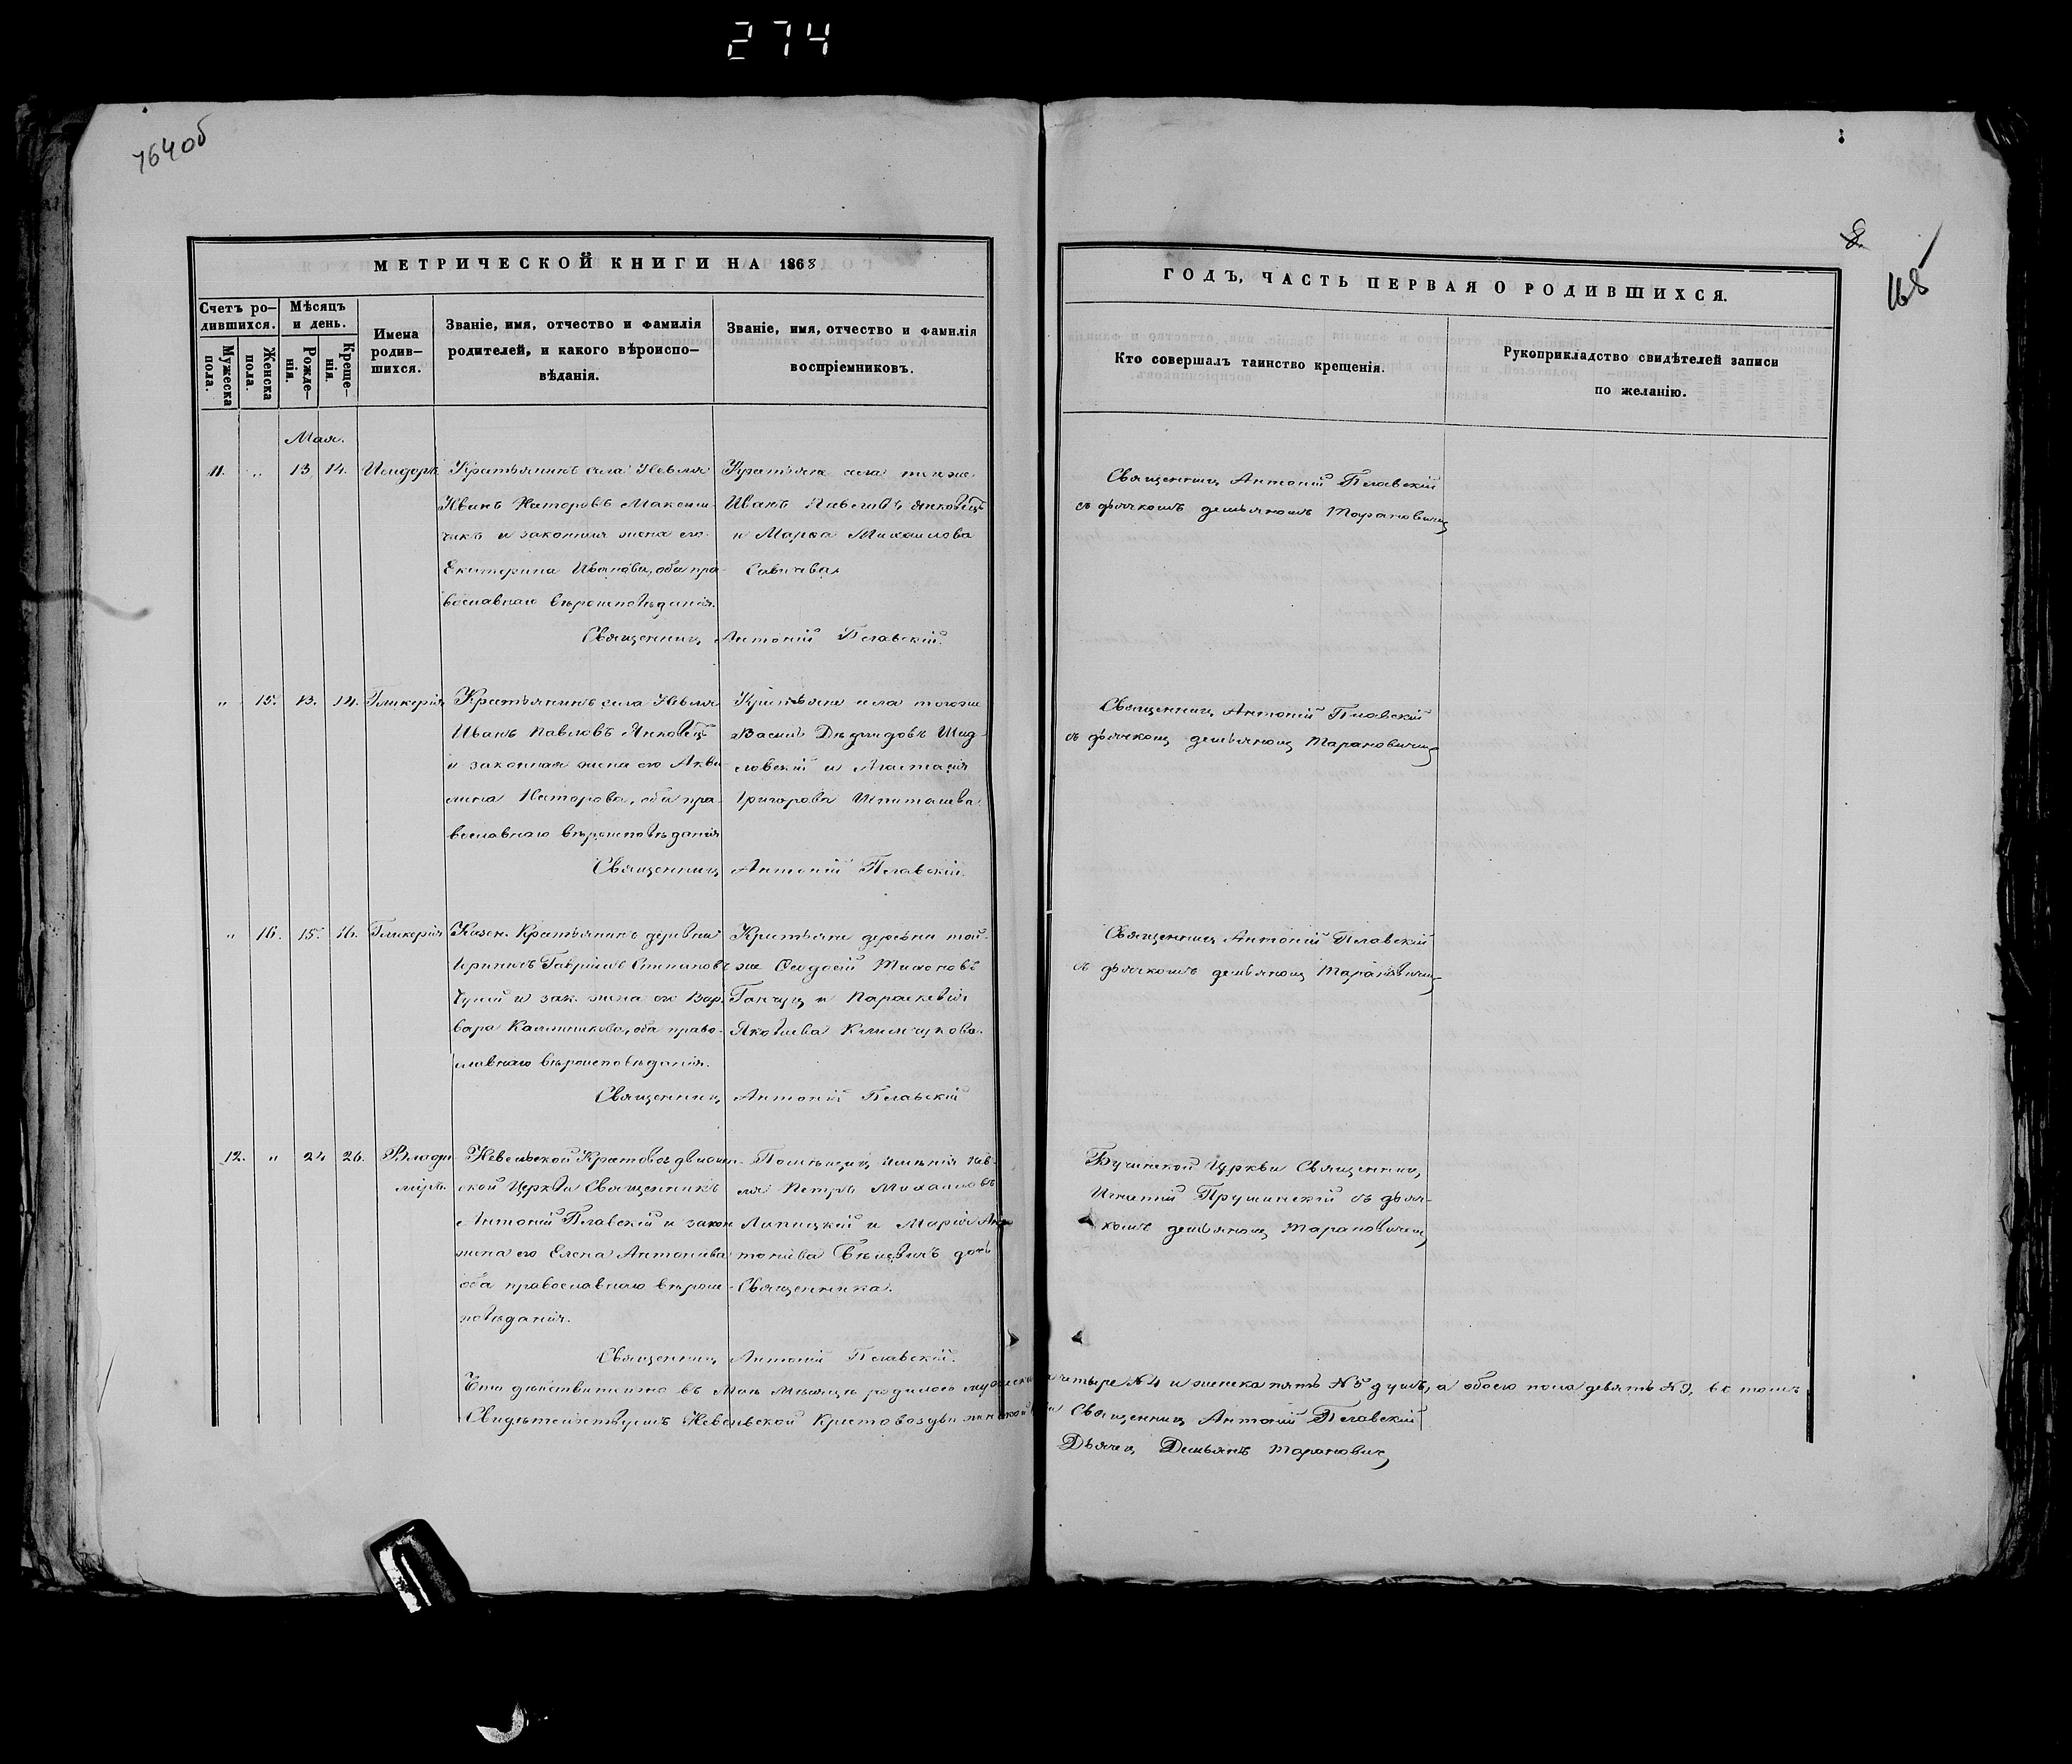 274
764об
8.
168
МЕТРИЧЕСКОЙ КНИГИ НА 1868
ГОДЪ, ЧАСТЬ ПЕРВАЯ О РОДИВШИХСЯ.
Счетъ ро-
дившихся.
Мужеска
пола.
Женска
пола.
Мѣсяцъ
и день.
Рожде-
нія.
Креще-
нія.
Имена
родив-
шихся.
Званіе, имя, отчество и фамилія
родителей, и какого вѣроиспо-
вѣданія.
Званіе, имя, отчество и фамилія
воспріемниковъ.
Кто совершалъ таинство крещенія.
Рукоприкладство свидѣтелей записи
по желанію.
Мая.
11. „ 13 14. Исидоръ
Крестьянинъ села Невля
Иванъ Несторовъ Максим-
чикъ и законная жена его
Екатерина Иванова, оба пра-
вославнаго вѣроисповѣданія.
Крестьяне села тогоже
Иванъ Павловъ Янковецъ
и Марѳа Михаилова
Священникъ Антоній Пглавскій
съ дьячкомъ Демьяномъ Тарановичемъ
Священникъ Антоній Пглавскій.
„ 15. 13. 14. Гликерія
Крестьянинъ села Невля
Иванъ Павловъ Янковецъ
и законная жена его Акви-
лина Несторова, оба пра-
вославнаго вѣроисповѣданія
Крестьяне села тогоже
Василій Дѣмидовъ Шид-
ловскій и Анастасія
Григорова
Священникъ Антоній Пглавскій
съ дьячкомъ Демьяномъ Тарановичемъ
Священникъ Антоній Пглавскій.
„ 16. 15. 16. Гликерія
Казен. Крестьянинъ деревни
Гавріилъ Степановъ
и зак. жена его Вар-
вара Калинникова, оба право-
славнаго вѣроисповѣданія.
Крестьяне деревни той-
же Ѳеодосій Тихоновъ
и Параскевія
Яковлева Климчукова.
Священникъ Антоній Пглавскій
съ дьячкомъ Демьяномъ Тарановичемъ
Священникъ Антоній Пглавскій
12. „ 24 26. Влади-
міръ.
Невельской Крестовоздвижен-
ской Церкви Священникъ
Антоній Пглавскій и закон.
жена его Елена Антонова
оба православнаго вѣроис-
повѣданія.
Помѣщикъ имѣнія Нев-
ля Петръ Михаиловъ
Липицкій и Марія Ан-
тонова дочь
Священника.
Священникъ
Игнатій Прушинскій съ дьяч-
комъ Демьяномъ Тарановичемъ
Священникъ Антоній Пглавскій.
Что дѣйствительно въ Маѣ Мѣсяцѣ родилось мужеска четыре №4 и женска пять №5 душъ, а обоего пола девять №9, въ томъ
Свидѣтельствуемъ Невельской Крестовоздвиженской Священникъ Антоній Пглавскій
Дьячекъ Демьянъ Тарановичъ